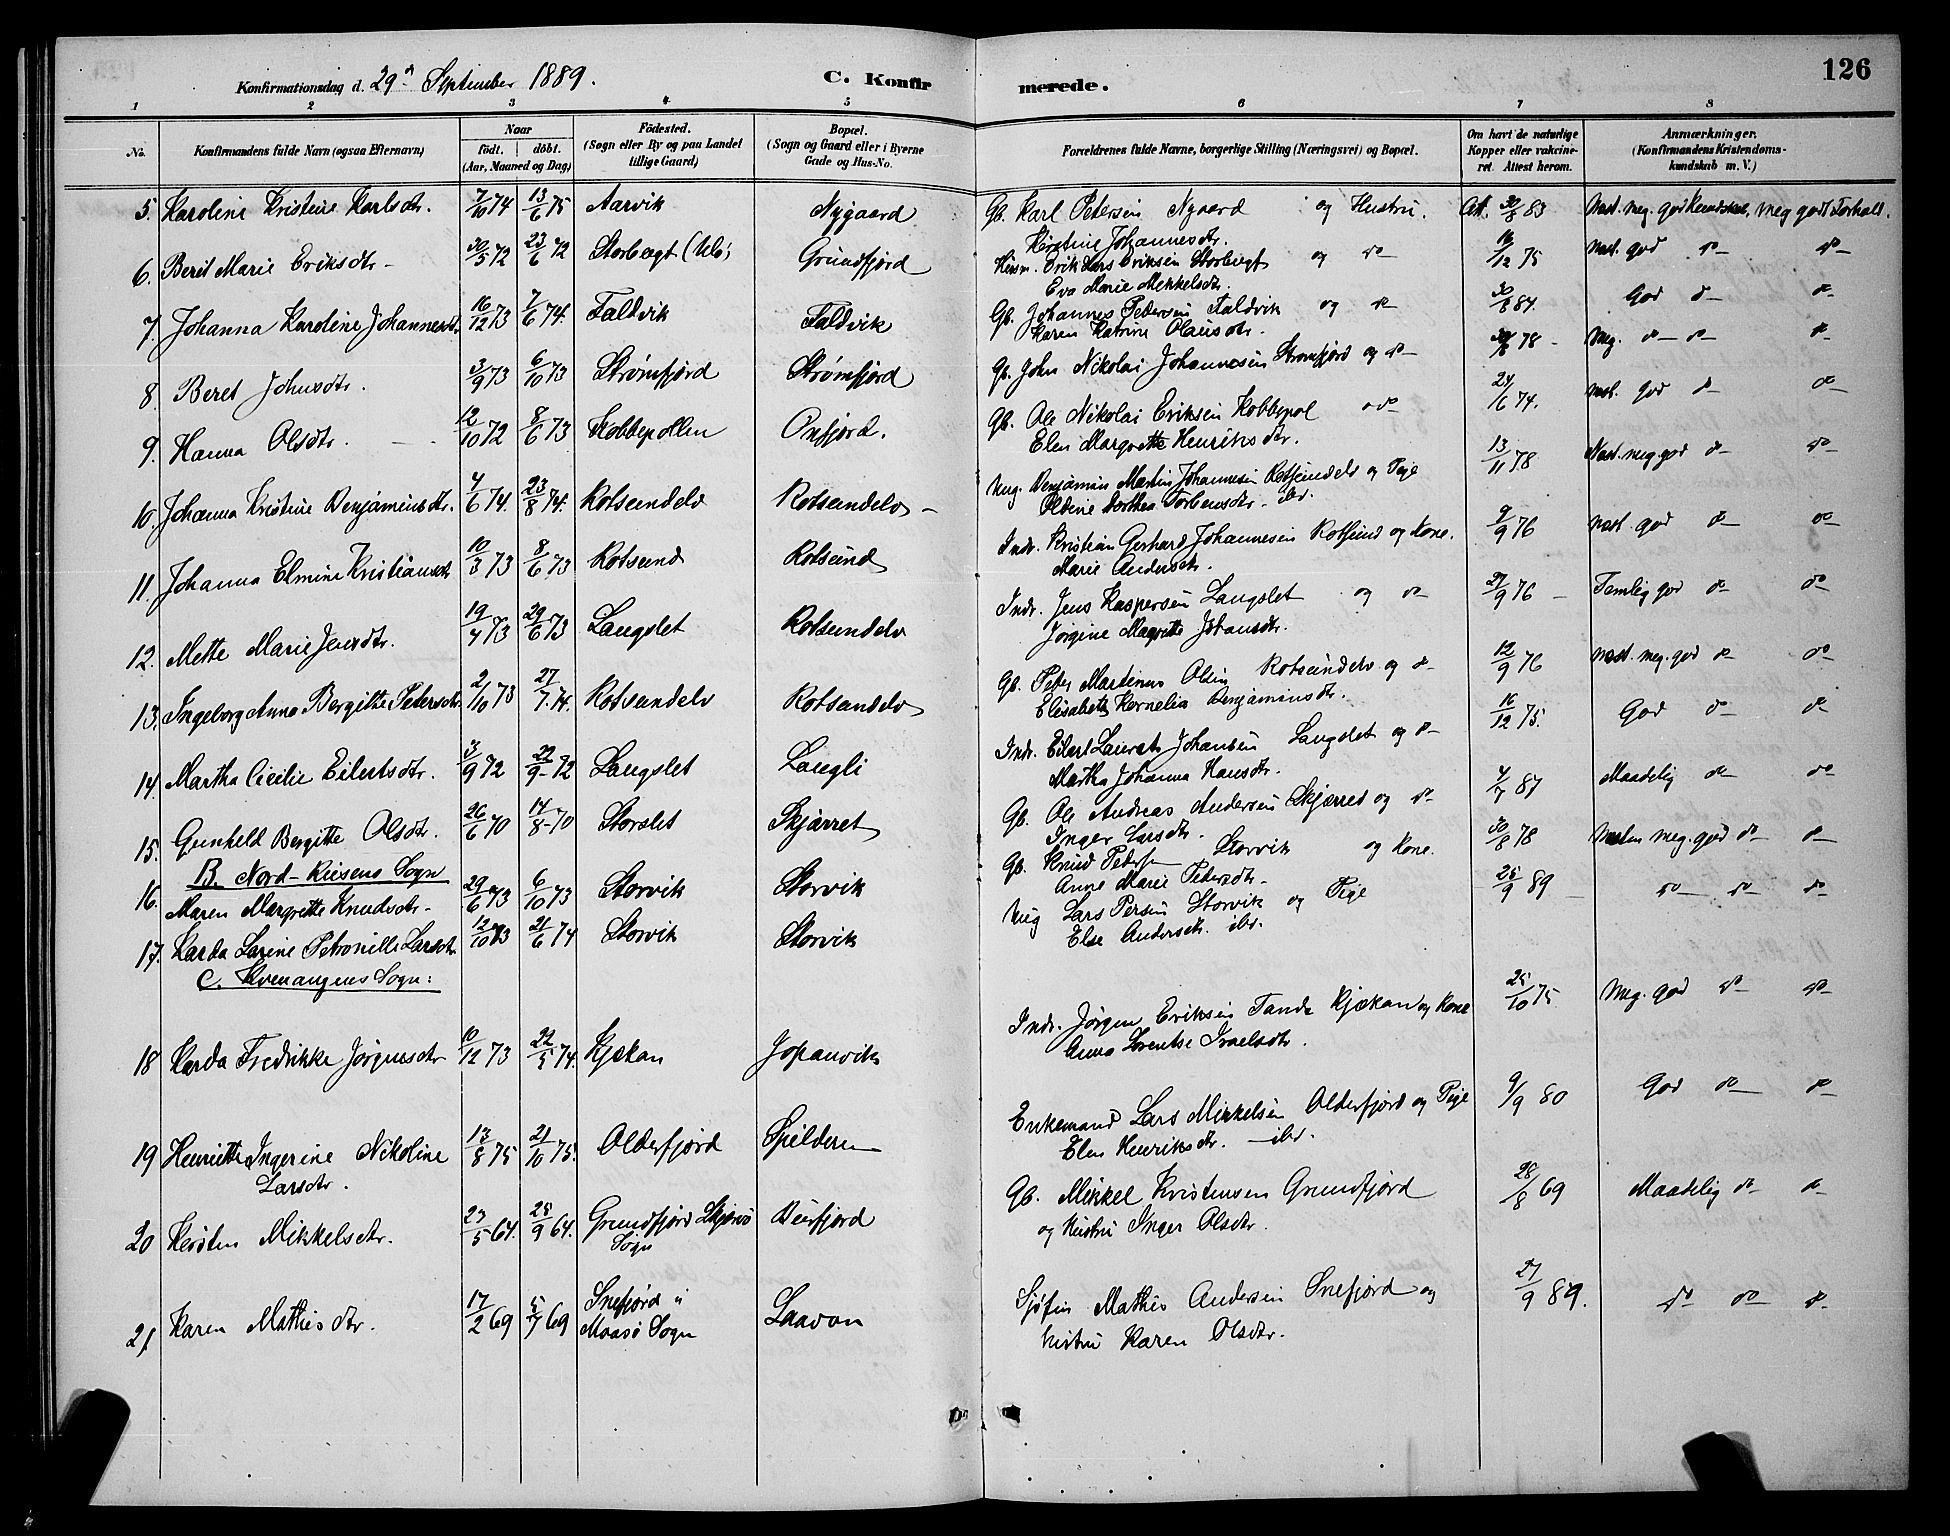 126
Konfirmationsdag d. 29d September 1889. C. Konfirmerede.
1 2 3 4 5 6 7 8
No. Konfirmandens fulde Navn (ogsaa Efternavn) Naar födt. döbt. (Aar, Maaned og Dag) Födested. (Sogn eller By og paa Landet tillige Gaard) Bopæl. (Sogn og Gaard eller i Byerne Gade og Hus-No. Forældrenes fulde Navne, borgerlige Stilling (Næringsvei) og Bopæl. Om havt de naturlige Kopper eller vakcineret. Attest herom. Anmærkninger. (Konfirmandens Kristendomskundskab m. V.)
5. Karoline Kristine Karlsdtr. 7/10 74 13/6 75 Aarvik Nygaard Gb. Karl Petersen Nygaard og Hustru. Att. 30/8 83 Nest. meg. god Kundskab, meg godt Forhold.
Kirstine Johannesdtr.
6. Berit Marie Eriksdtr 30/5 72 23/6 72 Storbugt Grundfjord Husm. Erik Lars Eriksen Storbugt og do 16/12 75 Nest. god do do
Eva Marie Mikkelsdtr.
7. Johanna Karoline Johannesdtr. 16/12 73 7/6 74. Taldvik Taldvik Gb. Johannes Pedersen Taldvik og do 30/8 84. God do do
Karen Katrine Olausdtr.
8. Beret Johnsdtr. 3/9 73 6/10 73 Strømfjord Strømfjord Gb. John Nikolai Johannesen Strømfjord og do 78 Meg. do do do
9. Hanna Olsdtr. 12/10 72 8/6 73 Kobbepollen Oxfjord. Gb. Ole Nikolai Eriksen Kobbepol o do 24/6 74. Nest. god do do
Elen Margrette Henriksdtr.
10. Johanna Kristine Benjaminsdtr. 4/6 74. 23/8 74. Rotsundelv Rotsundelv Ung. Benjamin Martin Johannesen Rotsundelv og Pige 13/11 78 Nest. meg god do do
Oldine Dorthea Torbensdtr. ibd.
11. Johanna Elmine Kristiansdtr 10/3 73 8/6 73 Rotsund Rotsund Indr. Kristian Gerhard Johannesen Rotsund og Kone. 9/9 76 Nest. god do do
Marie Andersdtr.
12. Mette Marie Jensdtr. 19/4 73 29/6 73 Langslet Rotsundelv Indr. Jens Kaspersen Langslet og do 27/9 76 Temlig god do do
Jørgine Magrette Johansdtr.
13. Ingeborg Anna Bergitte Petersdtr. 2/10 73 27/7 74. Rotsundelv Rotsundelv Gb. Peter Martinus Olsen Rotsundelv og do 12/9 76 Nest. meg. god do do
Elisabeth Kornelia Benjaminsdtr.
14. Martha Cicilie Eilertsdtr. 3/9 72 22/9 72 Langslet Langli Indr. Eilert Laurats Johansen Langslet og do 16/12 75. God do do
Martha Johanna Hansdtr.
15. Gunhild Bergitte Olsdtr. 26/6 70 14/8 70 Storslet Skjærret Gb. Ole Andreas Andersen Skjærred og do 4/7 87 Maadelig do do
Inger Larsdtr.
B. Nord-Reisens Sogn
16. Maren Margrette Knudsdtr. 29/6 73 6/10 73 Storvik Storvik Gb. Knud Peders Storvik og Kone. 30/8 78 Nesten meg. god do do
Anne Marie Petersdtr.
17. Karda Larine Petronille Larsdtr 12/10 73 21/6 74 Storvik Storvik Ung Lars Persen Storvik og Pige 25/9 89 do do do
Else Andersdtr. ibd.
C. Kvenangens Sogn:
18 Karda Fredrikke Jørgensdtr 10/12 73 22/5 74. Kjækan Jopanvik Indr. Jørgen Eriksen Tande Kjækan og Kone 25/10 75 Meg. god do do
Anna Lorentse Israelsdtr.
19 Henriette Ingerine Nikoline 13/8 75 21/10 75. Olderfjord Spilderen Enkemand Lars Mikkelsen Olderfjord og Pige 9/9 80 God do do
Larsdtr. Elen Henriksdtr. ibd.
20 Kersten Mikkelsdtr. 23/5 64. 25/9 64. Grundfjord Skjervø Burfjord Gb. Mikkel Kristensen Grundfjord 28/8 69 Maadelig do do
Sogn og Hustru Inger Olsdtr.
21 Karen Mathisdtr. 17/2 69 5/7 69 Snefjord i Laavan Sjøfin Mathis Andersen Snefjord og 27/9 89. do do do
Maasø Sogn Hustru Karen Olsdtr.